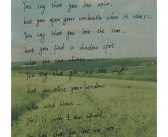 You say that you love rain,
but you open your umbrella when it rains...
You say that you love the sun,
but you find a shadow spot
when the sun shines...
You say that you love the wind,
but you close your windows
when wind blows...
This is why I am afraid,
you say that you love me too.